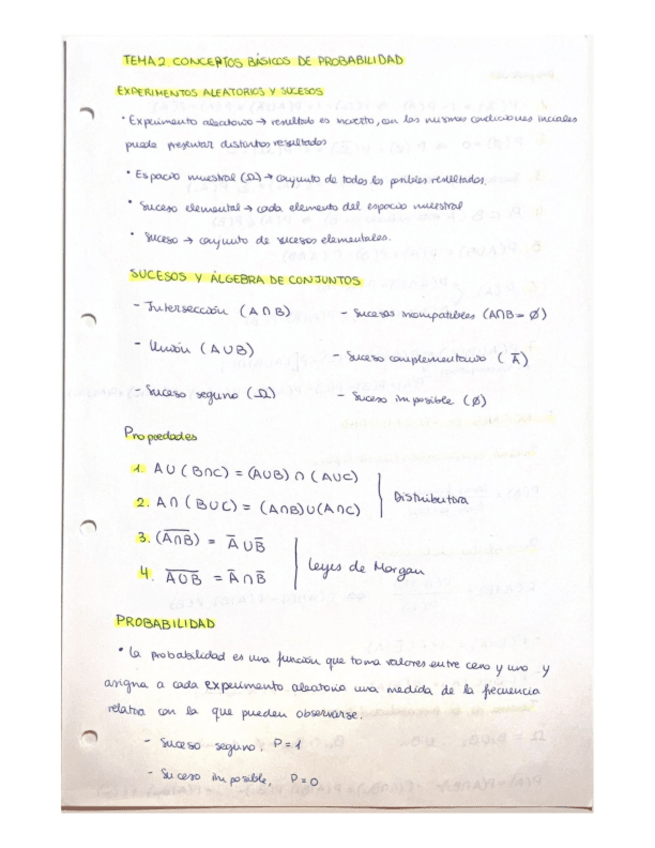 TEMA 2 CONCEPTOS BÁSICOS DE PROBABILIDAD
EXPERIMENTOS ALEATORIOS Y SUCESOS
• Experimento aleatorio → resultado es incierto, con las mismas condiciones iniciales
puede presentar distintos resultados
• Espacio muestral (Ω) → conjunto de todos los posibles resultados.
• Suceso elemental → cada elemento del espacio muestral
• Suceso → conjunto de sucesos elementales.
SUCESOS Y ÁLGEBRA DE CONJUNTOS
- Intersección (A∩B) - Sucesos incompatibles (A∩B = Ø)
- Unión (A∪B) - Suceso complementario (A̅)
- Suceso seguro (Ω) - Suceso imposible (Ø)
Propiedades
1. A∪(B∩C) = (A∪B)∩(A∪C)
2. A∩(B∪C) = (A∩B)∪(A∩C) Distributiva
3. (A̅∩̅B̅) = A̅∪B̅
4. A̅∪̅B̅ = A̅∩B̅ Leyes de Morgan
PROBABILIDAD
• La probabilidad es una función que toma valores entre cero y uno y
asigna a cada experimento aleatorio una medida de la frecuencia
relativa con la que pueden observarse.
- Suceso seguro. P=1
- Suceso imposible, P=0